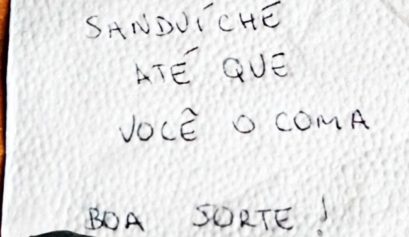 SANDUÍCHE
ATÉ QUE
VOCÊ O COMA
BOA SORTE!